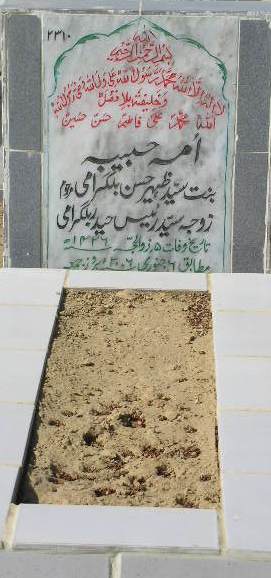 ۲۳۱۰
بسم اللہ الرحمن الرحیم
لا الہ الا اللہ محمد رسول اللہ علی ولی اللہ
وخلیفتہ بلا فصل
اللہ محمد علی فاطمہ حسن حسین
امہ حبیبہ
بنت سید ظہیر حسن بلگرامی مرحوم
زوجہ سید رئیس حیدر بلگرامی
تاریخ وفات ۵ ذوالحجہ ۱۴۲۶ھ
مطابق ۶ جنوری ۲۰۰۶ء بروز جمعہ